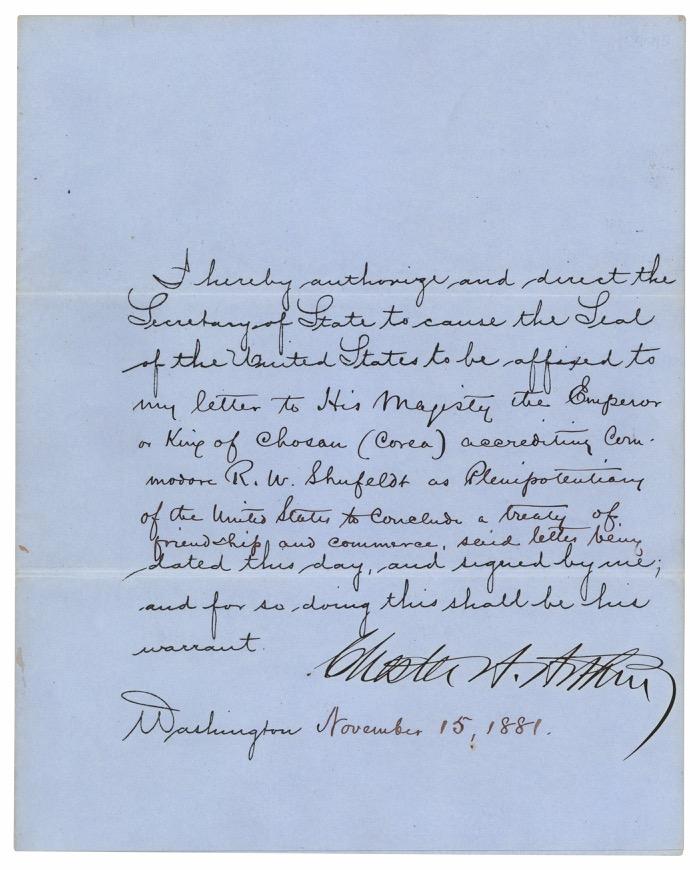 I hereby authorize and direct the
Secretary of State to cause the Seal
of the United States to be affixed to
my letter to His Majesty the Emperor
or King of Chosan (Corea) accrediting Com-
modore R. W. Shufeldt as Plenipotentiary
of the United States to conclude a treaty of
friendship and commerce, said letter being
dated this day, and signed by me;
and for so doing this shall be his
warrant.
Chester A. Arthur
Washington November 15, 1881.